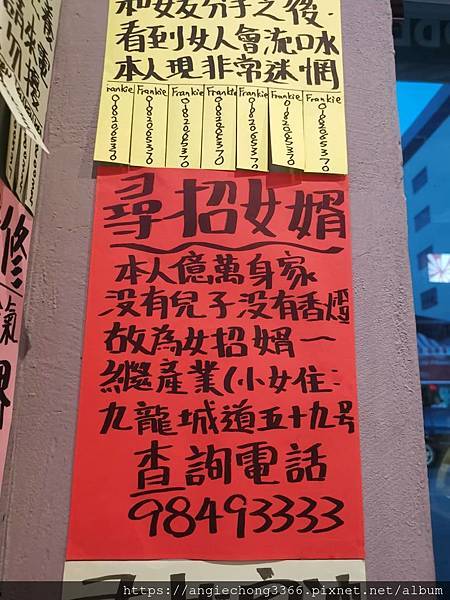 和女友分手之後.
看到女人會流口水
本人現非常迷惘
Frankie Frankie Frankie Frankie Frankie Frankie Frankie
0182065370 0182065370 0182065370 0182065370 0182065370 0182065370 0182065370
尋招女婿
本人億萬身家
沒有兒子沒有香燈
故為女招婿一
繼產業(小女住:
九龍城道五十九号
查詢電話
98493333
修
氣
界
https://angiechong3366.pixnet.net/album